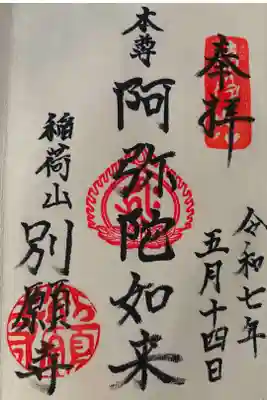 奉拝
令和七年
五月十四日
本尊
阿弥陀如来
稲荷山
別願寺